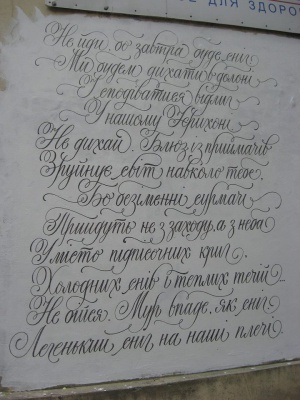 ДЛЯ ЗДОРО
Не йди, бо завтра буде сніг.
Ми будем дихати в долоні
І сподіватися відлиг
У нашому Єрихоні.
Не дихай. Блюз із приймачів
Зруйнує світ навколо тебе.
Бо безіменні сурмачі
Прийдуть не з заходу, а з неба
У місто підпісочних криг.
Холодних снів і теплих течій...
Не бійся. Мур впаде, як сніг.
Легенький сніг на наші плечі.